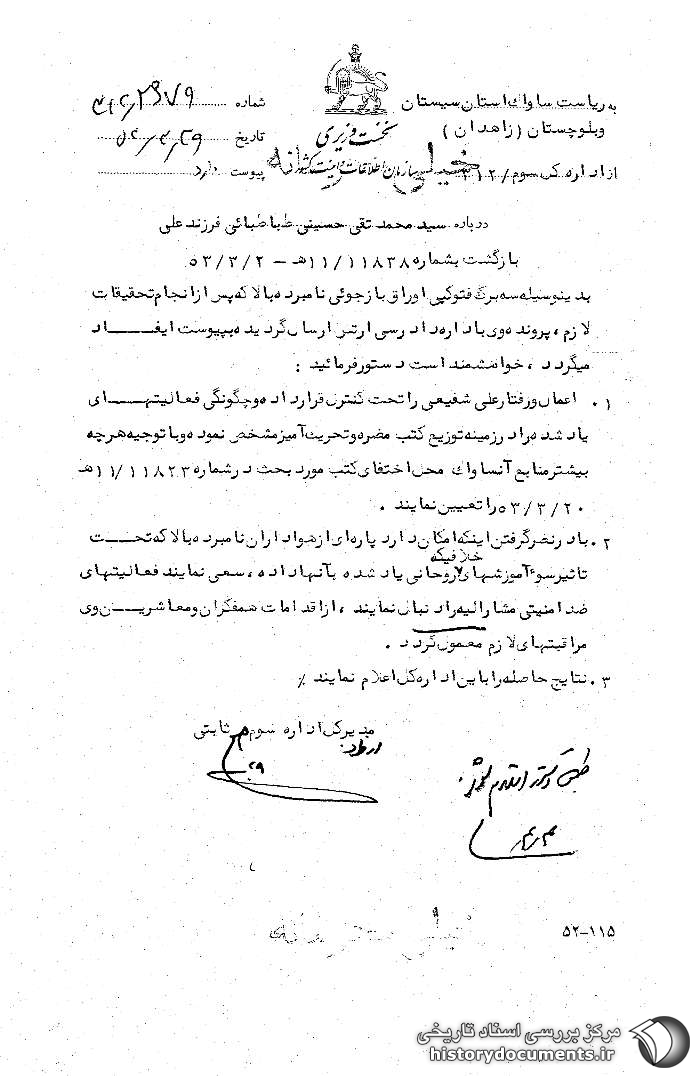 به ریاست ساواك استان سیستان
و بلوچستان ( زاهدان )
از اداره کل سوم / ۳۱۲
نخست وزیری
سازمان اطلاعات و امنیت کشور
خیلی محرمانه
شماره ۳۱۲/۲۹۷۹
تاریخ
پیوست دارد
درباره سید محمد تقی حسینی طباطبائی فرزند علی
بازگشت بشماره ۱۱/۱۱۸۳۸هـ - ۵۳/۳/۲
بدینوسیله سه برگ فتوکپی اوراق بازجوئی نامبرده بالا که پس از انجام تحقیقات
لازم ، پرونده وی باداره دادرسی ارتش ارسال گردیده بپیوست ایفاد
میگردد ، خواهشمند است دستور فرمائید :
۱ . اعمال و رفتار علی شفیعی را تحت کنترل قرار داده و چگونگی فعالیتهای
یاد شده را در زمینه توزیع کتب مضره و تحریک آمیز مشخص نموده و با توجیه هر چه
بیشتر منابع آنساواك محل اختفای کتب مورد بحث در شماره ۱۱/۱۱۸۲۳هـ
۵۳/۳/۲۰ را تعیین نمایند .
۲ . با در نظر گرفتن اینکه امکان دارد پاره ای از هواداران نامبرده بالا که تحت
تاثیر سوء آموزشهای خلافیکه روحانی یاد شده بآنها داده ، سعی نمایند فعالیتهای
ضد امنیتی مشارالیه را دنبال نمایند ، از اقدامات همفکران و معاشرین وی
مراقبتهای لازم معمول گردد .
۳ . نتایج حاصله را باین اداره کل اعلام نمایند ٪
مدیر کل اداره سوم ثابتی
از طرف
۲۹
طبق دستور اقدام شود
۵۲-۱۱۵
مرکز بررسی اسناد تاریخی
historydocuments.ir